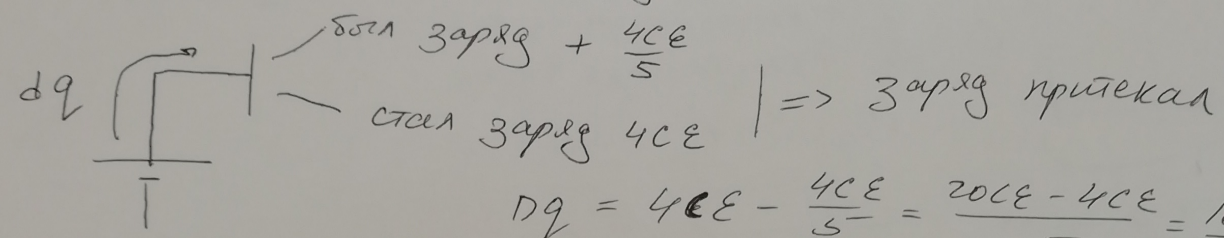 был заряд + 4Cε/5
dq
стал заряд 4Cε | => заряд притекал
Dq = 4Cε - 4Cε/5 = 20Cε - 4Cε = 1